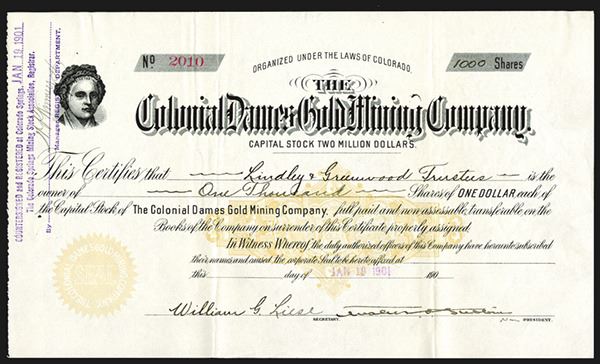 COUNTERSIGNED and REGISTERED at Colorado Springs, JAN 19 1901
The Colorado Springs Mining Stock Association, Registrar.
By
Manager DEPARTMENT.
No 2010
ORGANIZED UNDER THE LAWS OF COLORADO.
1000 Shares
THE
Colonial Dames Gold Mining Company.
CAPITAL STOCK TWO MILLION DOLLARS.
This Certifies that Lindley & Greenwood Trustees is the
owner of One Thousand Shares of ONE DOLLAR each of
the Capital Stock of The Colonial Dames Gold Mining Company, full paid and non assessable, transferable on the
Books of the Company on surrender of this Certificate properly assigned.
In Witness Whereof, the duly authorized officers of this Company have hereunto subscribed
their names and caused the corporate Seal to be hereto affixed at
this day of JAN 19 1901 190
William G. Liese
SECRETARY.
PRESIDENT.